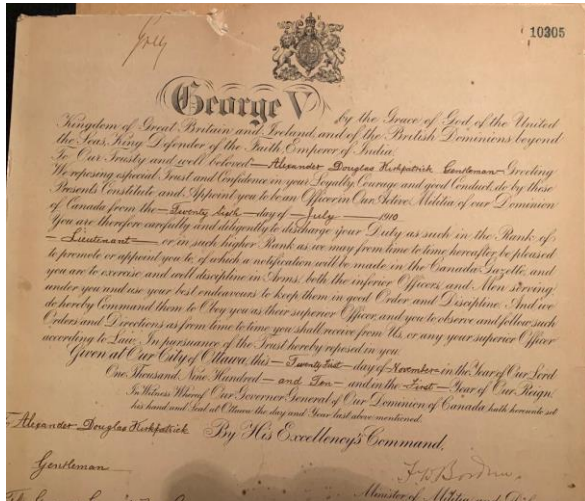 Grey
10305
George V
by the Grace of God, of the United
Kingdom of Great Britain and Ireland, and of the British Dominions beyond
the Seas, King Defender of the Faith, Emperor of India.
To Our Trusty and well beloved — Alexander Douglas Kirkpatrick, Gentleman — Greeting
We reposing especial Trust and Confidence in your Loyalty Courage and good Conduct, do by these
Presents Constitute and Appoint you to be an Officer in Our Active Militia, of our Dominion
of Canada from the — Twenty sixth — day of — July — 1910
You are therefore carefully and diligently to discharge your Duty as such in the Rank of
— Lieutenant — or in such higher Rank as we may from time to time hereafter be pleased
to promote or appoint you to, of which a notification will be made in the Canada Gazette, and
you are to exercise and well discipline in Arms, both the inferior Officers and Men serving
under you and use your best endeavours to keep them in good Order and Discipline. And we
do hereby Command them to Obey you as their superior Officer, and you to observe and follow such
Orders and Directions as from time to time you shall receive from Us, or any your superior Officer
according to Law, In pursuance of the Trust hereby reposed in you.
Given at Our City of Ottawa, this — Twenty first — day of — November — in the Year of Our Lord
One Thousand Nine Hundred — and Ten — and in the — First — Year of Our Reign.
In Witness Whereof Our Governor General of Our Dominion of Canada, hath hereunto set
his hand and Seal at Ottawa the day and Year last above mentioned.
Alexander Douglas Kirkpatrick
By His Excellency's Command,
Gentleman
F W Borden
Minister of Militia and